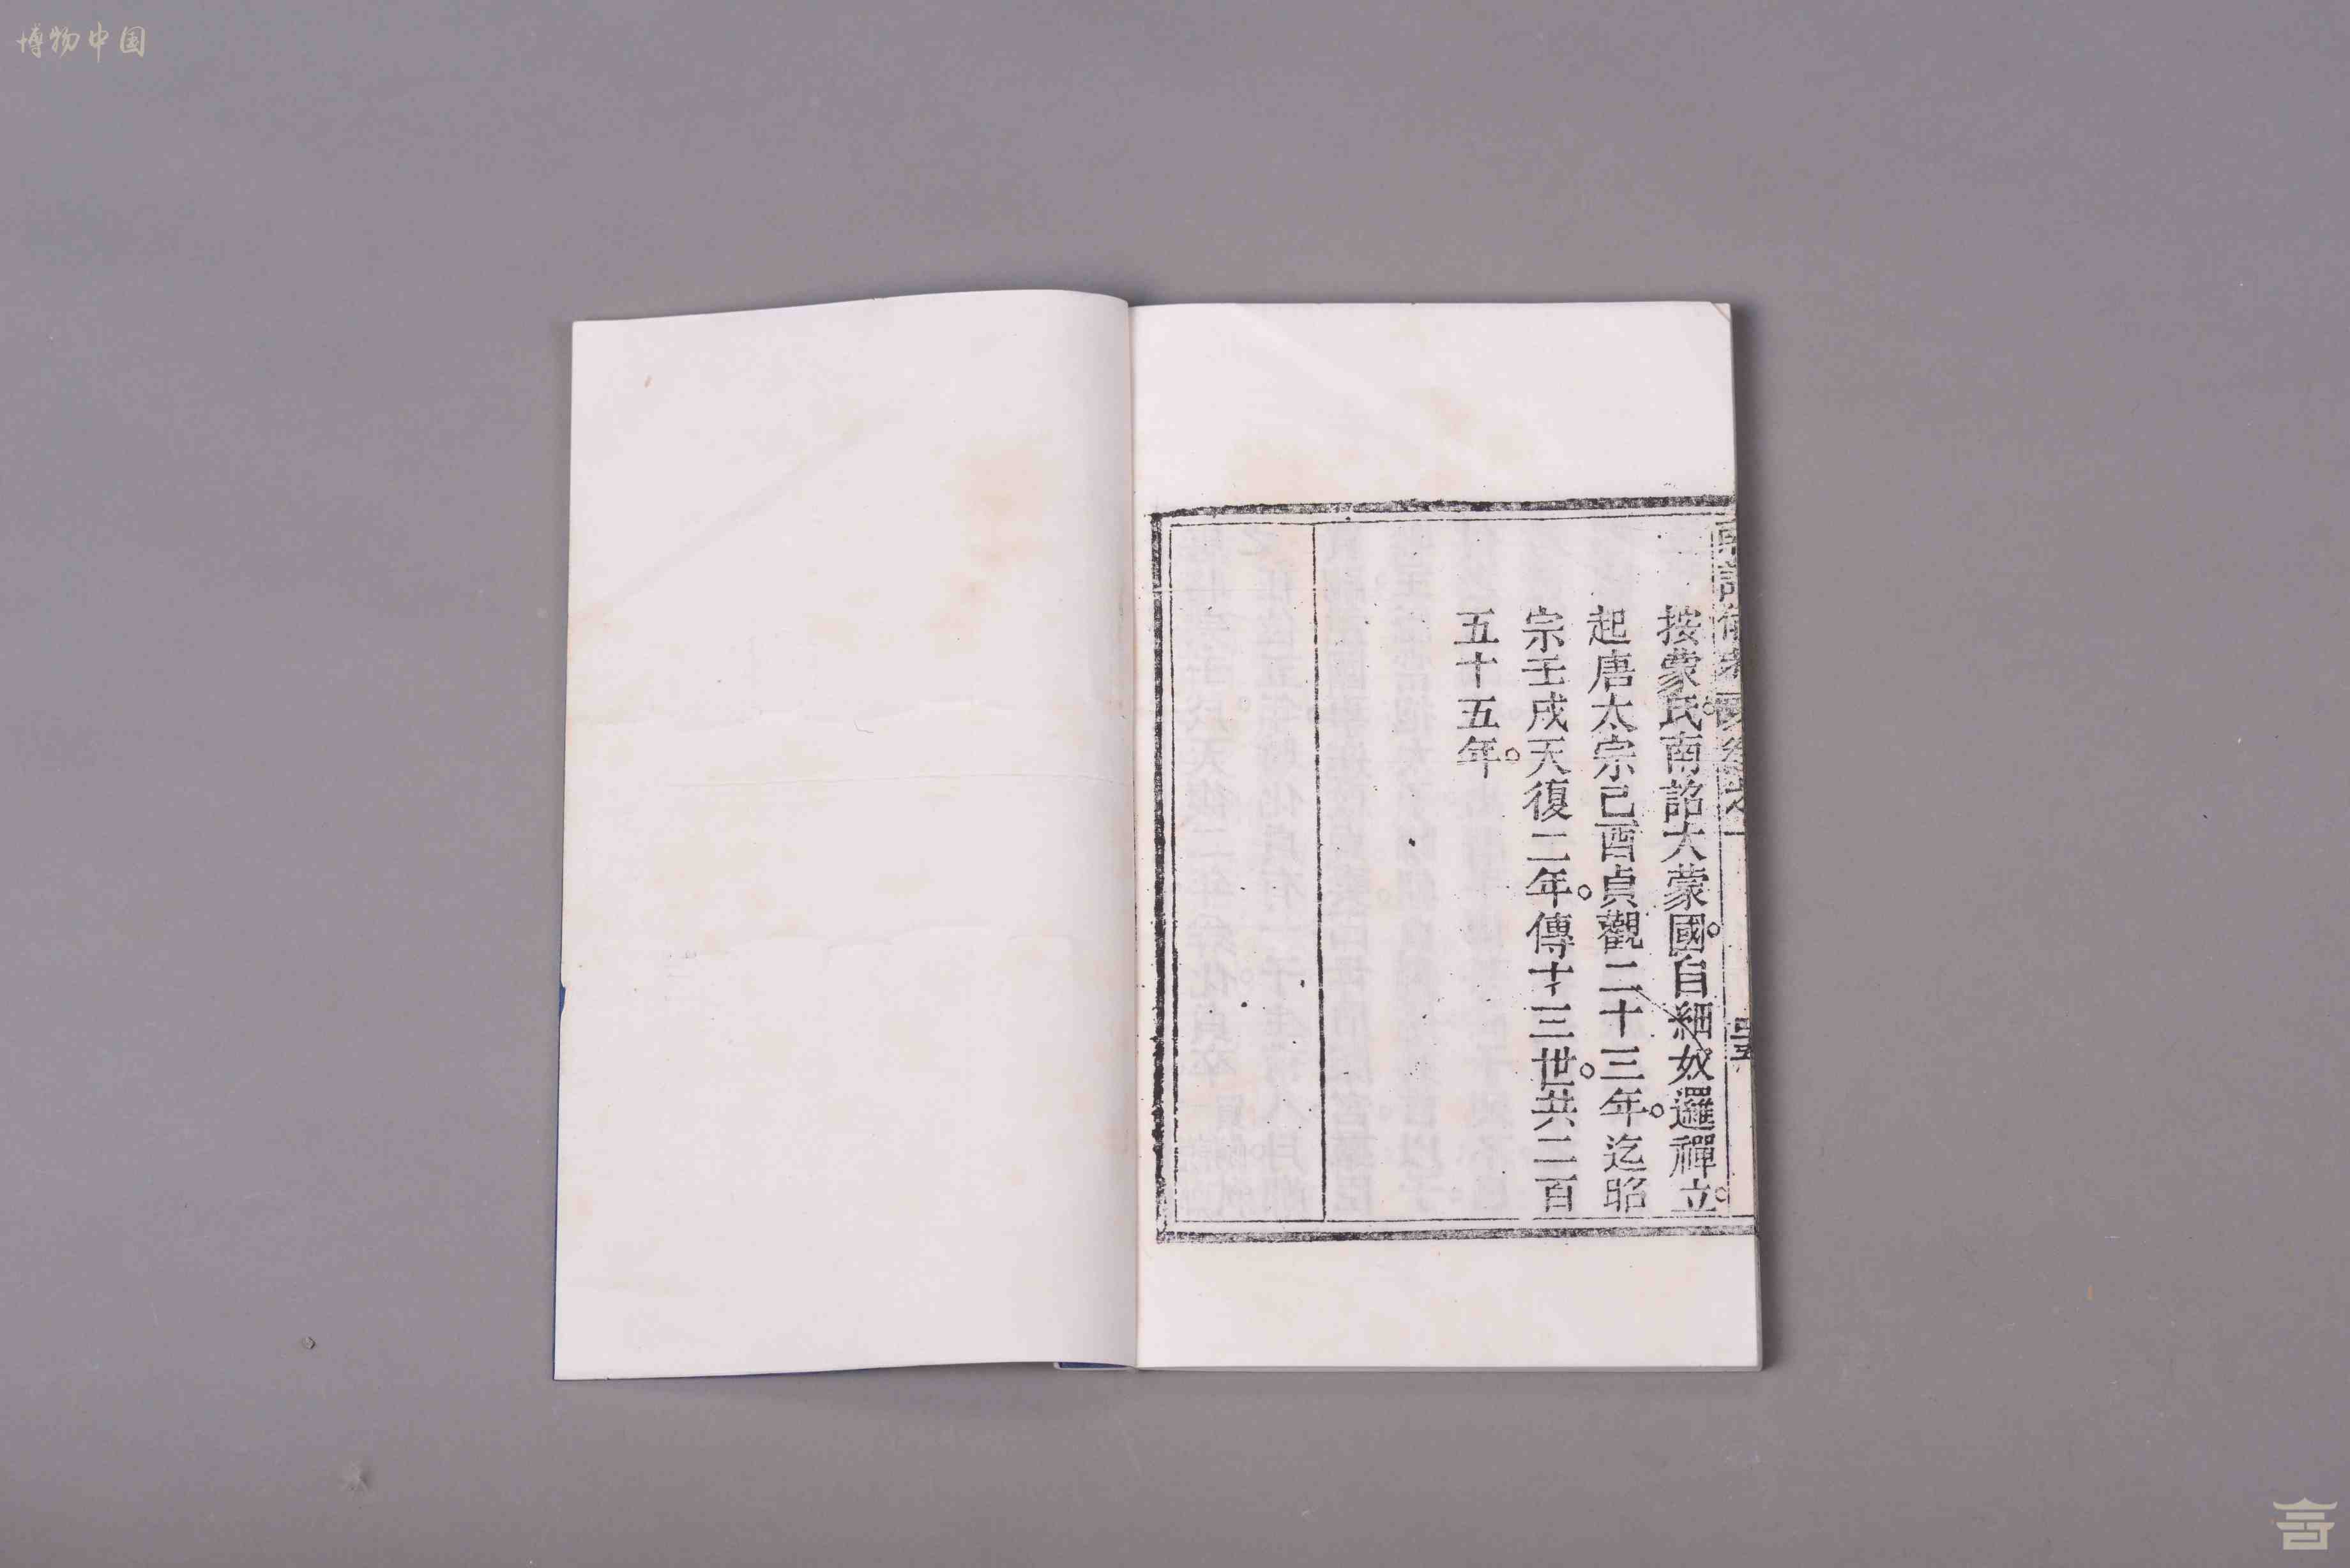 博物中国
按蒙氏。南詔大蒙國。自細奴邏禪立。
起唐太宗己酉貞觀二十三年。迄昭
宗壬戌天復二年。傳十三世。共二百
五十五年。